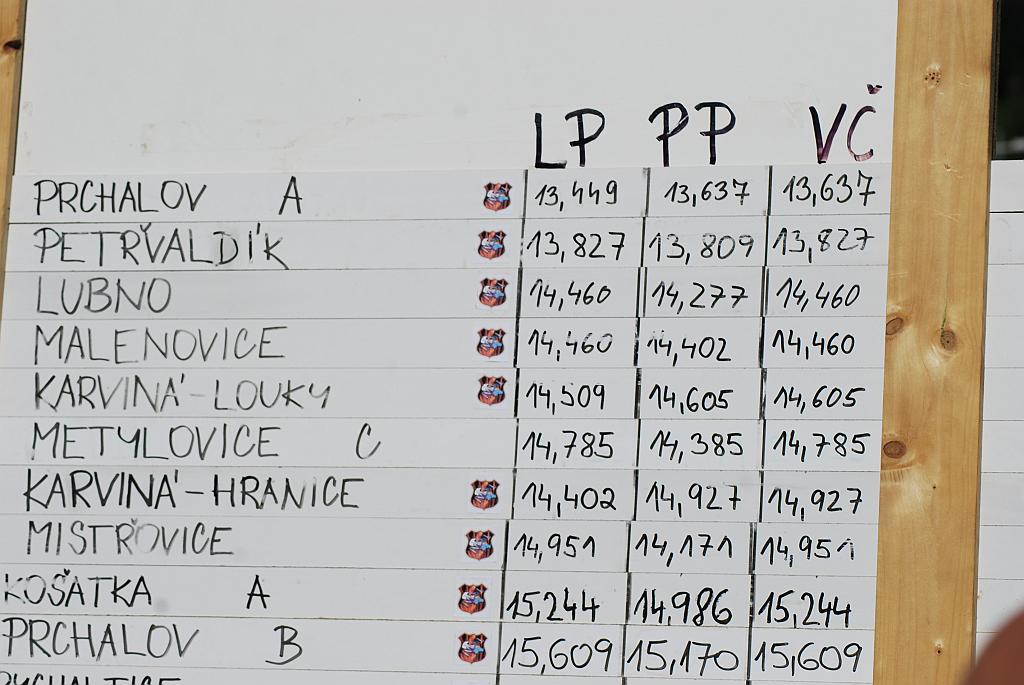 LP PP VČ
PRCHALOV A 13,449 13,637 13,637
PETRVALDÍK 13,827 13,809 13,827
LUBNO 14,460 14,277 14,460
MALENOVICE 14,460 14,402 14,460
KARVINÁ-LOUKY 14,509 14,605 14,605
METYLOVICE C 14,785 14,385 14,785
KARVINÁ-HRANICE 14,402 14,927 14,927
MISTŘOVICE 14,951 14,171 14,951
KOŠATKA A 15,244 14,986 15,244
PRCHALOV B 15,609 15,170 15,609